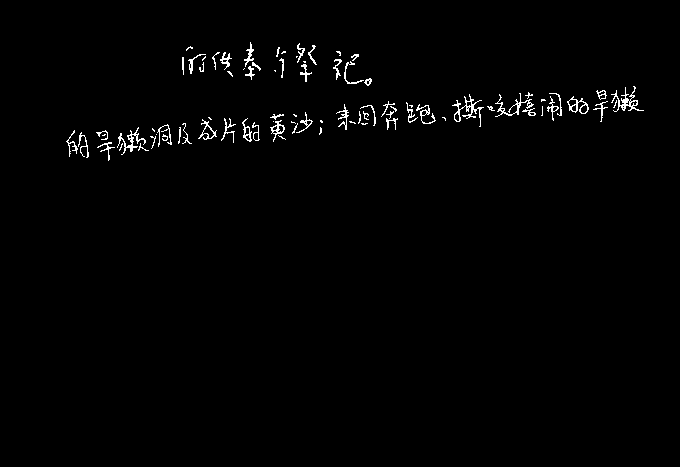 的供奉与祭祀。
的旱獭洞及成片的黄沙；来回奔跑、撕咬嬉闹的旱獭